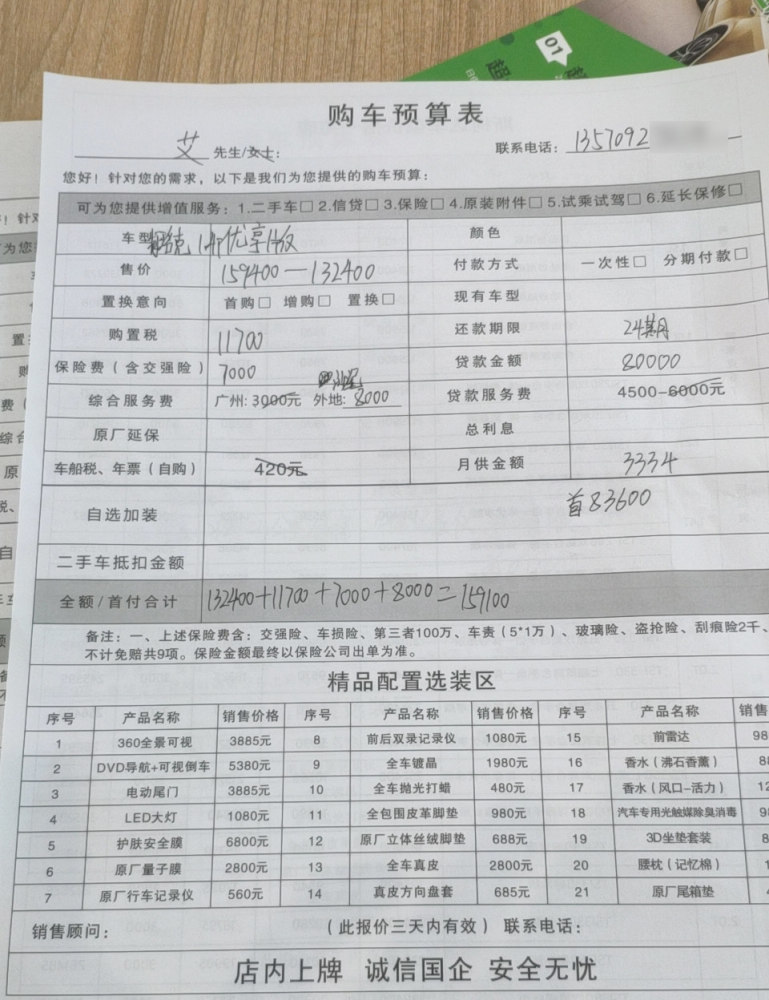 01
购车预算表
艾 先生/女士: 联系电话: 1357092
您好！针对您的需求，以下是我们为您提供的购车预算:
可为您提供增值服务: 1.二手车□ 2.信贷□ 3.保险□ 4.原装附件□ 5.试乘试驾□ 6.延长保修□
车型 优享版 颜色
售价 159400—132400 付款方式 一次性□ 分期付款□
置换意向 首购□ 增购□ 置换□ 现有车型
购置税 11700 还款期限 24期
保险费（含交强险） 7000 贷款金额 80000
综合服务费 广州: 3000元 外地: 8000 贷款服务费 4500-6000元
原厂延保 总利息
车船税、年票（自购） 420元 月供金额 3334
自选加装 首83600
二手车抵扣金额
全额/首付合计 132400+11700+7000+8000=159100
备注: 一、上述保险费含: 交强险、车损险、第三者100万、车责（5*1万）、玻璃险、盗抢险、刮痕险2千、
不计免赔共9项。保险金额最终以保险公司出单为准。
精品配置选装区
序号 产品名称 销售价格 序号 产品名称 销售价格 序号 产品名称 销售
1 360全景可视 3885元 8 前后双录记录仪 1080元 15 前雷达 98
2 DVD导航+可视倒车 5380元 9 全车镀晶 1980元 16 香水（沸石香薰）
3 电动尾门 3885元 10 全车抛光打蜡 480元 17 香水（风口-活力） 12
4 LED大灯 1080元 11 全包围皮革脚垫 980元 18 汽车专用光触媒除臭消毒
5 护肤安全膜 6800元 12 原厂立体丝绒脚垫 688元 19 3D坐垫套装
6 原厂量子膜 2800元 13 全车真皮 2800元 20 腰枕（记忆棉）
7 原厂行车记录仪 560元 14 真皮方向盘套 685元 21 原厂尾箱垫
销售顾问: （此报价三天内有效） 联系电话:
店内上牌 诚信国企 安全无忧